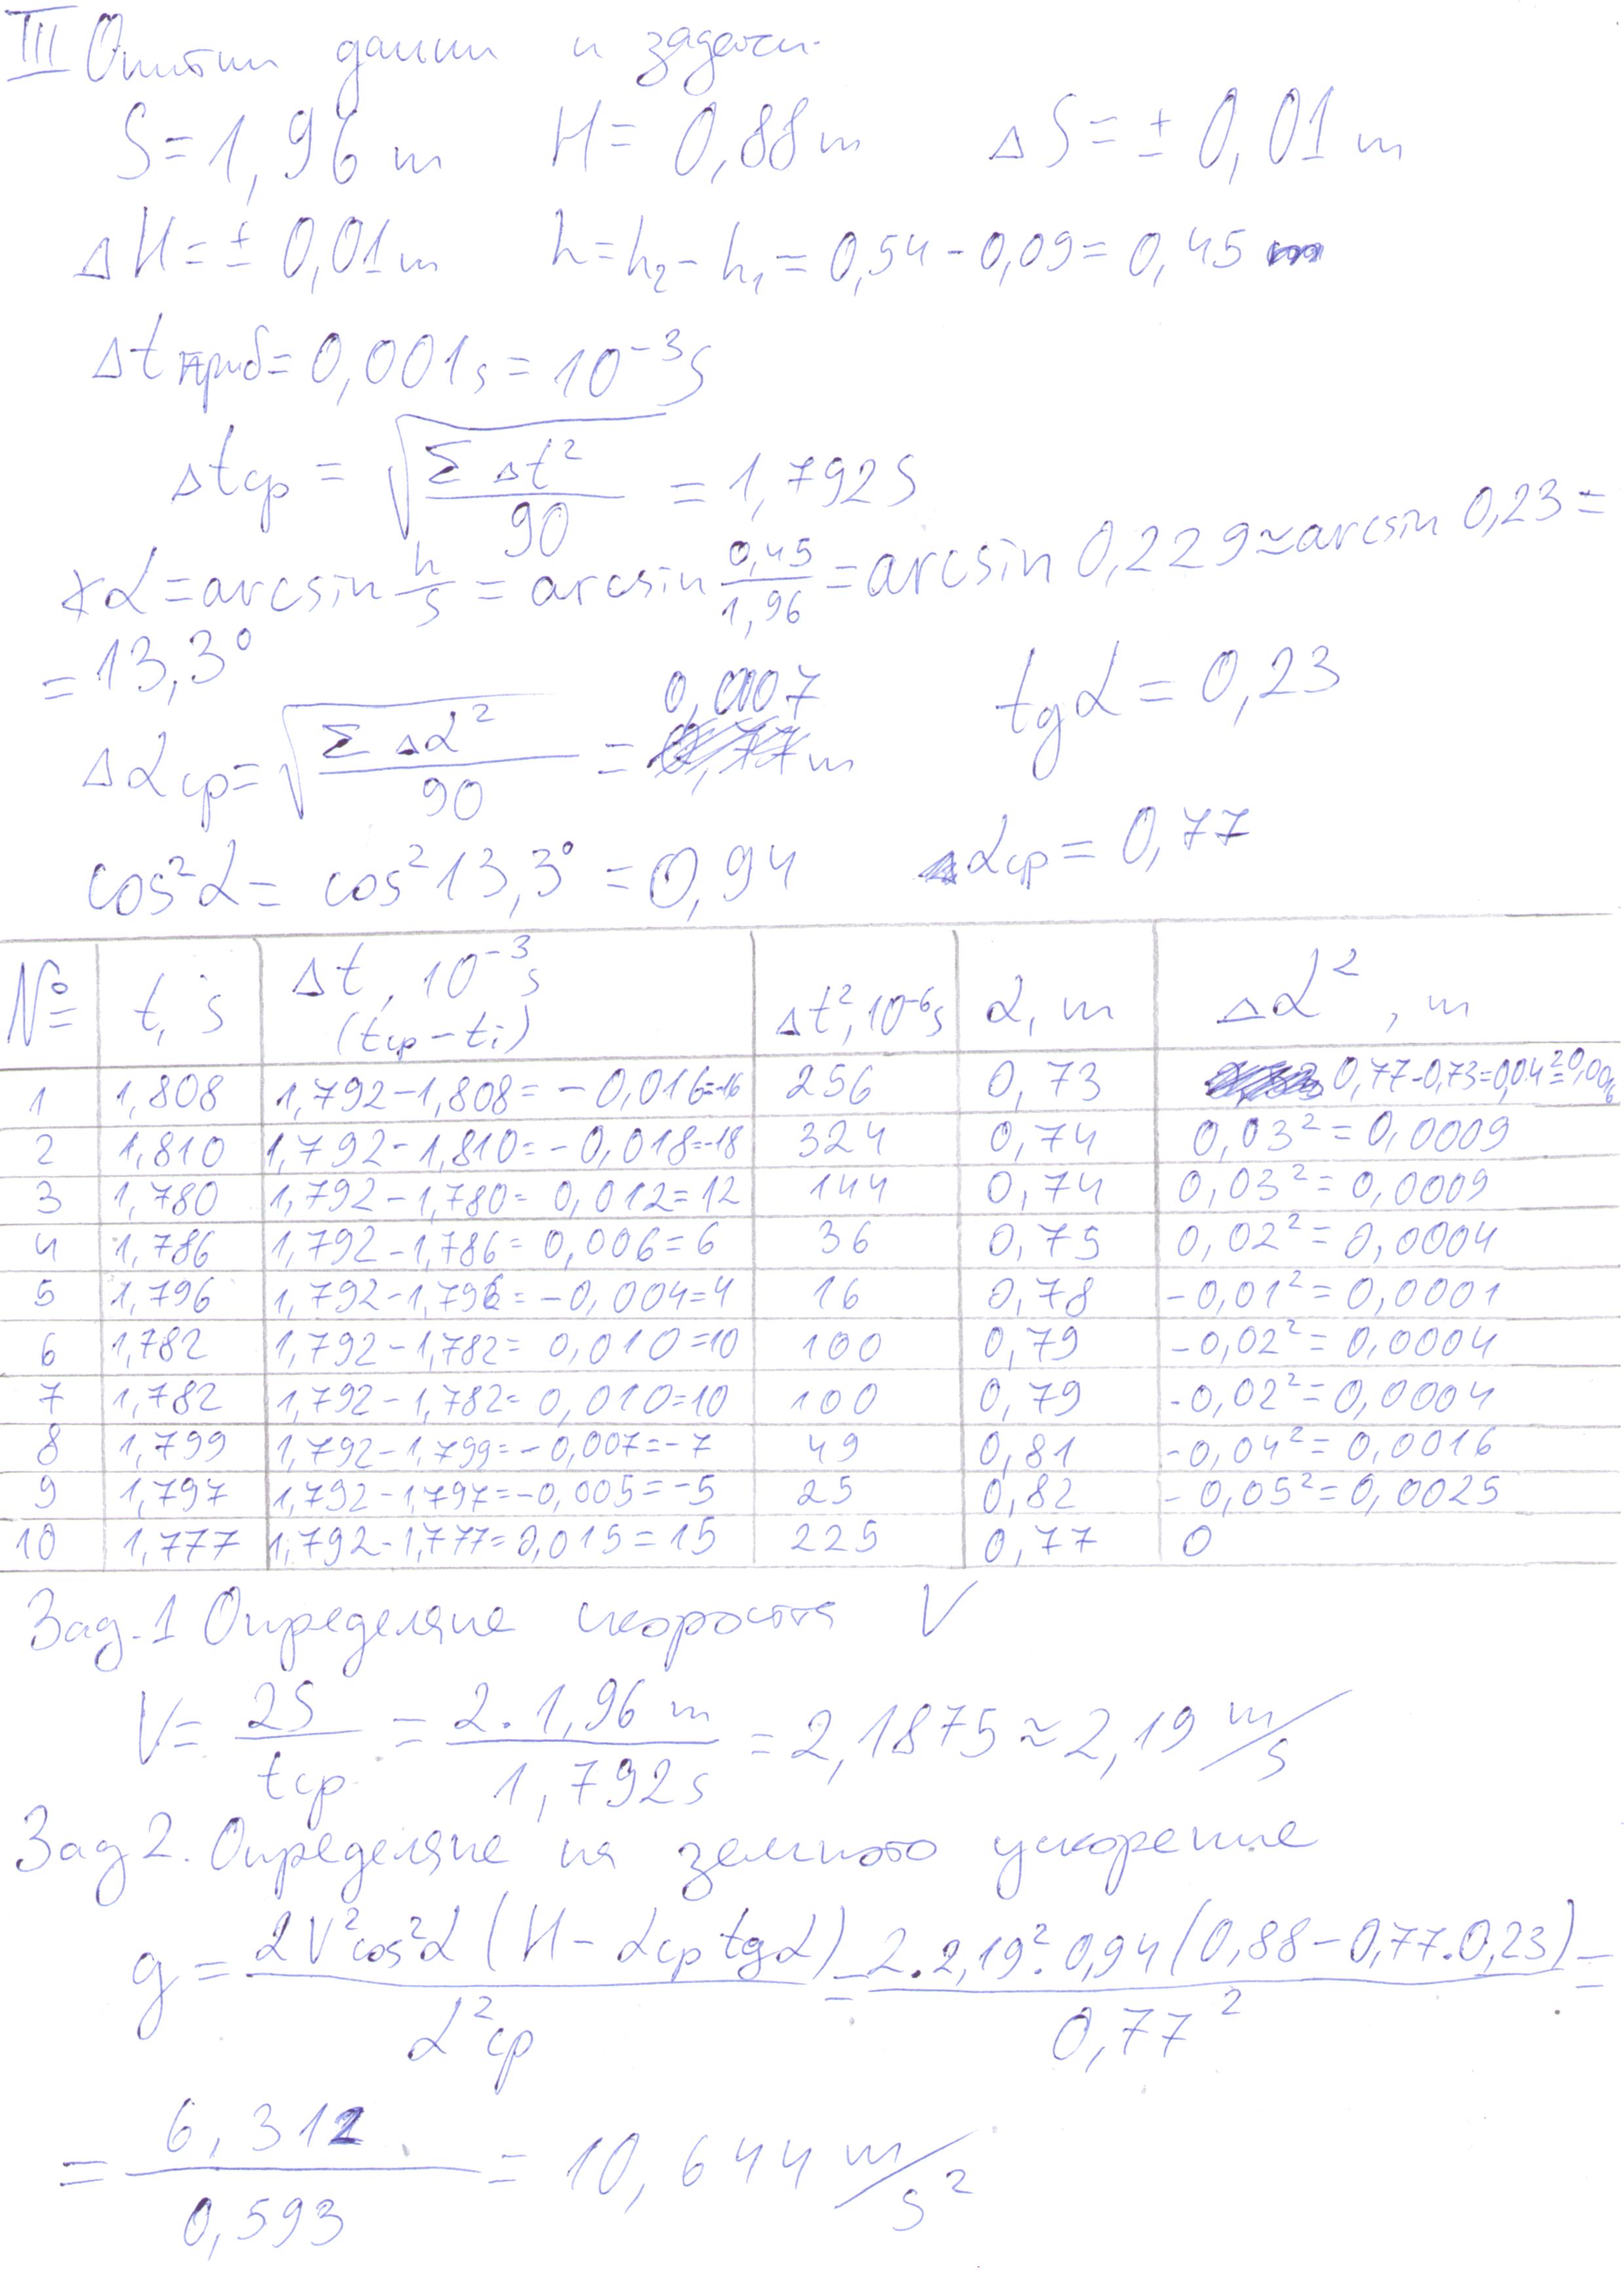 III Опитни данни и задачи.
S = 1,96 m H = 0,88 m ΔS = ± 0,01 m
ΔH = ± 0,01 m h = h₂ - h₁ = 0,54 - 0,09 = 0,45 m
Δt приб = 0,001 s = 10⁻³ s
Δt ср = √(Σ Δt² / 90) = 1,792 s
∢α = arcsin h/s = arcsin 0,45/1,96 = arcsin 0,229 ≈ arcsin 0,23 =
= 13,3° tgα = 0,23
Δd ср = √(Σ Δd² / 90) = 0,0007 m
cos²α = cos² 13,3° = 0,94 d ср = 0,77
№ t, s Δt, 10⁻³ s (t ср - tᵢ) Δt², 10⁻⁶ s d, m Δd², m
1 1,808 1,792 - 1,808 = - 0,016 = -16 256 0,73 0,77 - 0,73 = 0,04² = 0,0016
2 1,810 1,792 - 1,810 = - 0,018 = -18 324 0,74 0,03² = 0,0009
3 1,780 1,792 - 1,780 = 0,012 = 12 144 0,74 0,03² = 0,0009
4 1,786 1,792 - 1,786 = 0,006 = 6 36 0,75 0,02² = 0,0004
5 1,796 1,792 - 1,796 = - 0,004 = 4 16 0,78 - 0,01² = 0,0001
6 1,782 1,792 - 1,782 = 0,010 = 10 100 0,79 - 0,02² = 0,0004
7 1,782 1,792 - 1,782 = 0,010 = 10 100 0,79 - 0,02² = 0,0004
8 1,799 1,792 - 1,799 = - 0,007 = - 7 49 0,81 - 0,04² = 0,0016
9 1,797 1,792 - 1,797 = - 0,005 = - 5 25 0,82 - 0,05² = 0,0025
10 1,777 1,792 - 1,777 = 0,015 = 15 225 0,77 0
Зад. 1 Определяне скоростта V
V = 2S / t ср = 2 . 1,96 m / 1,792 s = 2,1875 ≈ 2,19 m/s
Зад 2. Определяне на земното ускорение
g = 2V²cos²α (H - d ср tgα) / d² ср = 2 . 2,19² . 0,94 (0,88 - 0,77 . 0,23) / 0,77² =
= 6,312 / 0,593 = 10,644 m/s²